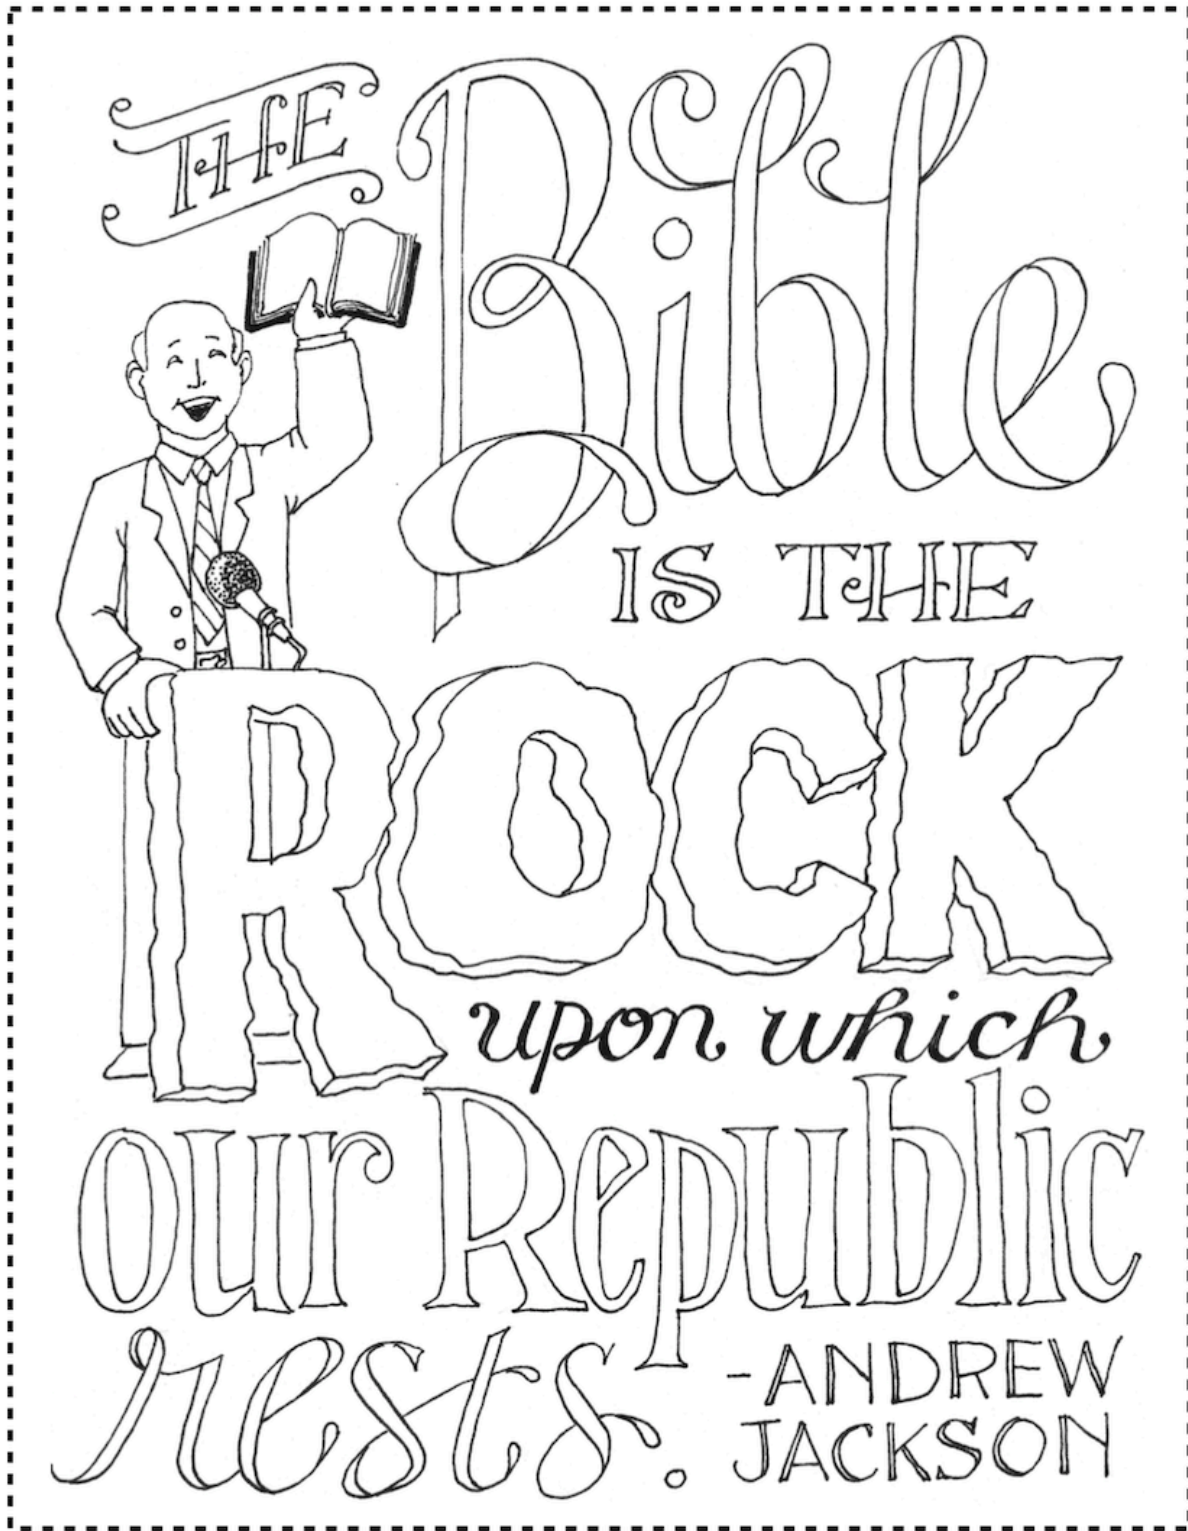 THE
Bible
IS THE
ROCK
upon which
our Republic
rests.
-ANDREW
JACKSON